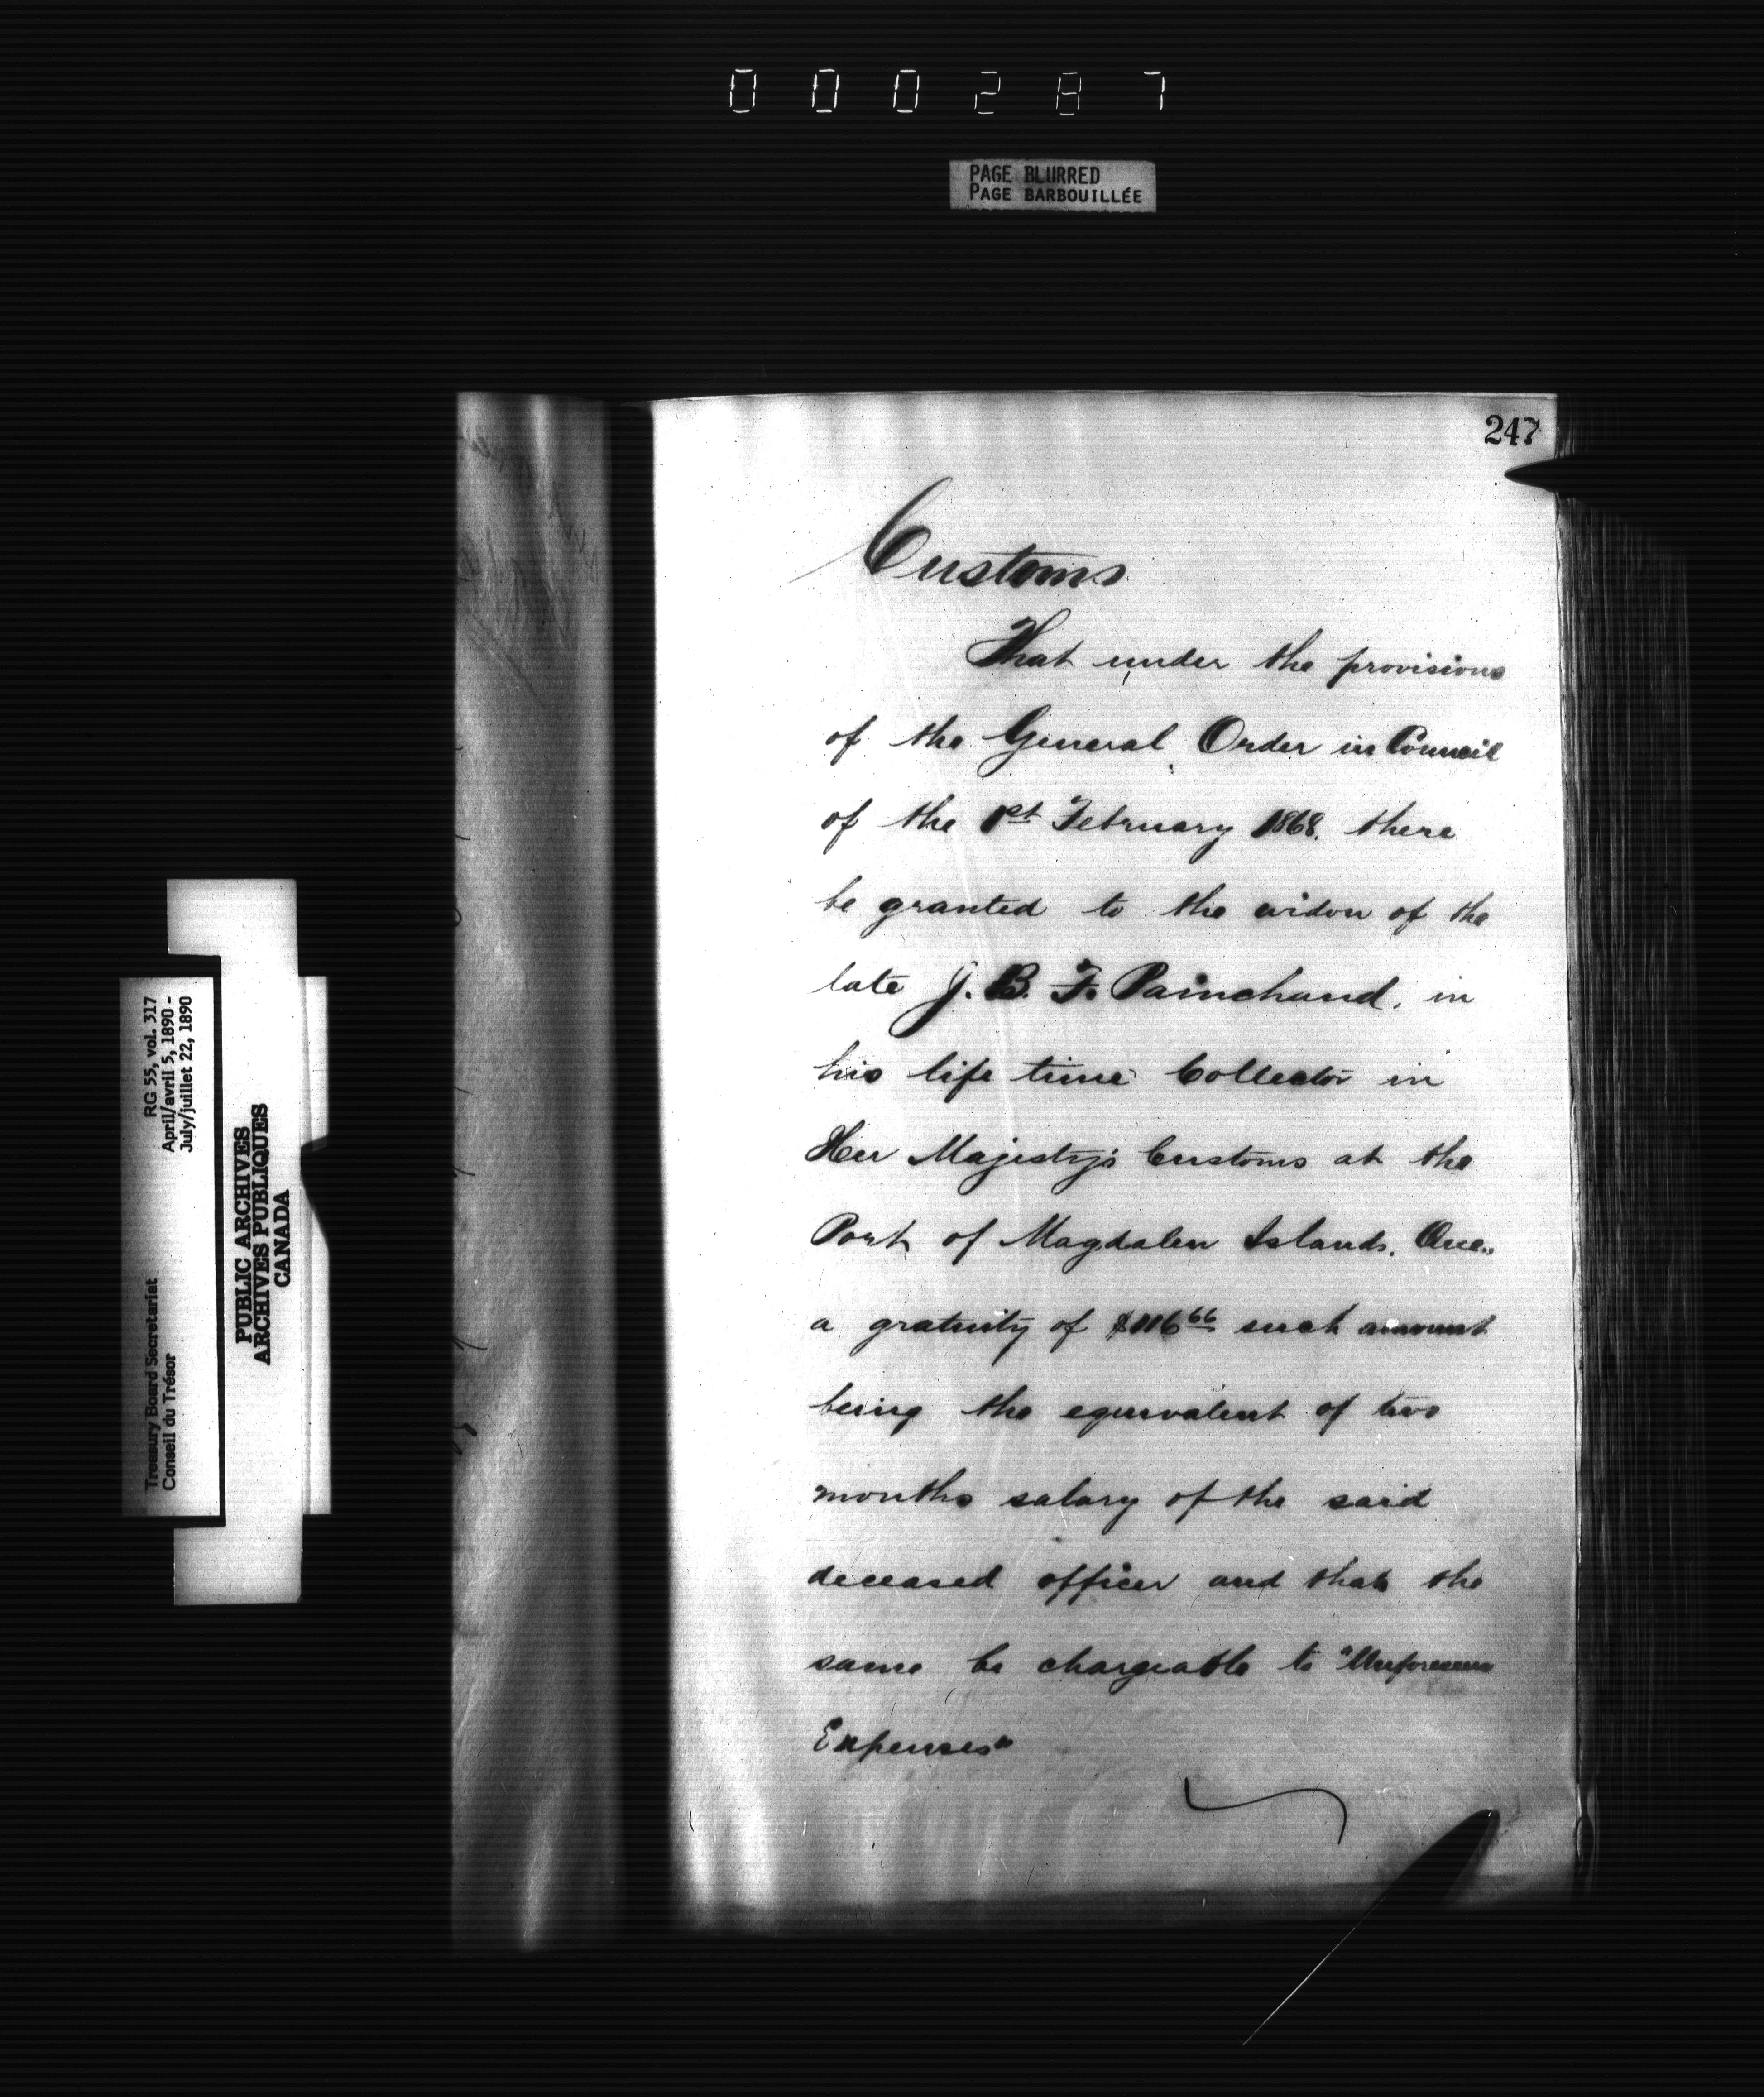 000287
PAGE BLURRED
PAGE BARBOUILLÉE
247
Customs
That under the provisions
of the General Order in Council
of the 1st February 1868. there
be granted to the widow of the
late J. B. F. Painchaud, in
his life time Collector in
Her Majesty's Customs at the
Port of Magdalen Islands, Que.,
a gratuity of $116 66 such amount
being the equivalent of two
months salary of the said
deceased officer and that the
same be chargeable to "Unforeseen
Expenses"
RG 55, vol. 317
April/avril 5, 1890 -
July/juillet 22, 1890
Treasury Board Secretariat
Conseil du Trésor
PUBLIC ARCHIVES
ARCHIVES PUBLIQUES
CANADA